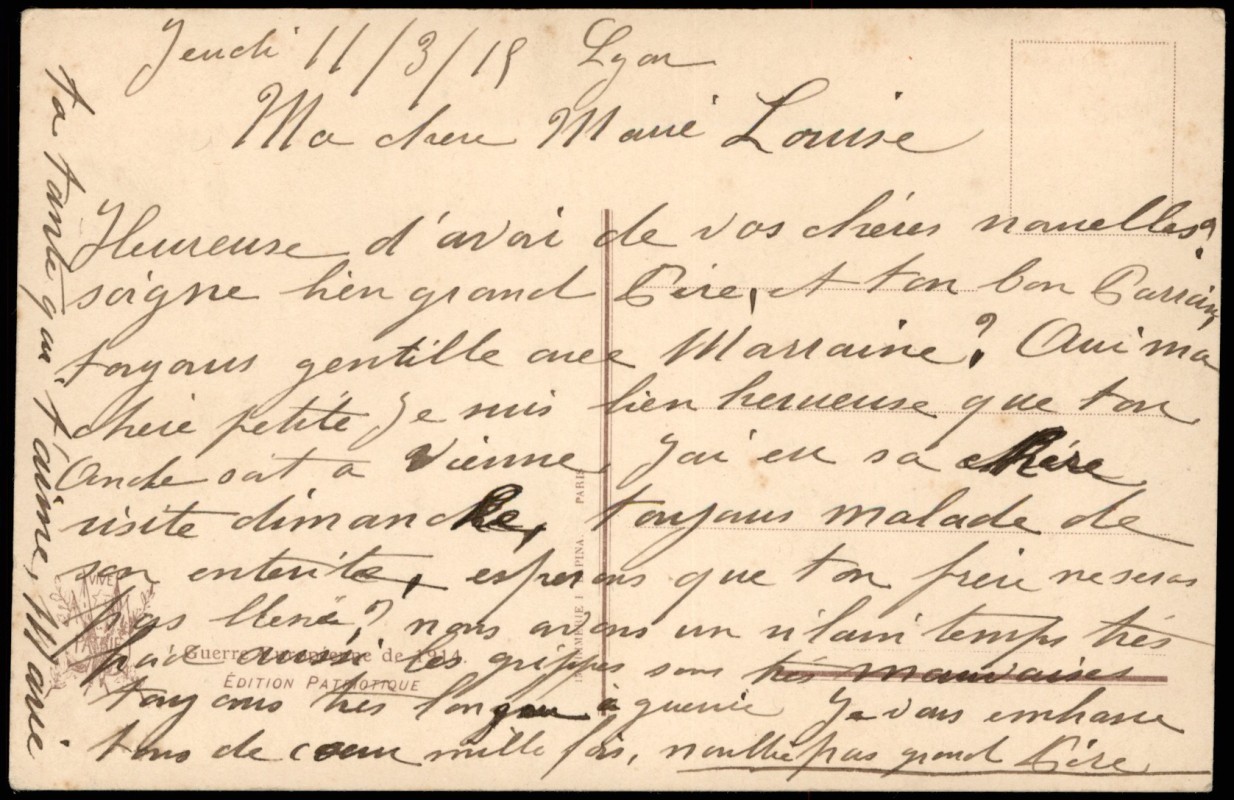 Jeudi 11/3/15 Lyon
Ma chere Marie Louise
Heureuse d'avoir de vos chéres nouvelles?
soigne bien grand Pére, et ton bon Parrain,
toujours gentille avec Marraine? Oui ma
chérie petite, Je suis bien heureuse que ton
Oncle soit a Vienne, J'ai eu sa chére
visite dimanche, toujours malade de
son enterite, esperons que ton frére ne sera
pas blessé? nous avons un vilain temps trés
froid aussi les grippes sont trés mauvaises
toujours trés longue à guerir Je vous embrasse
tous de coeur mille fois, n'oublie pas grand Pére
ta tante qui t'aime, Marie
VIVE
Guerre Européenne de 1914.
ÉDITION PATRIOTIQUE
PINA, PARIS